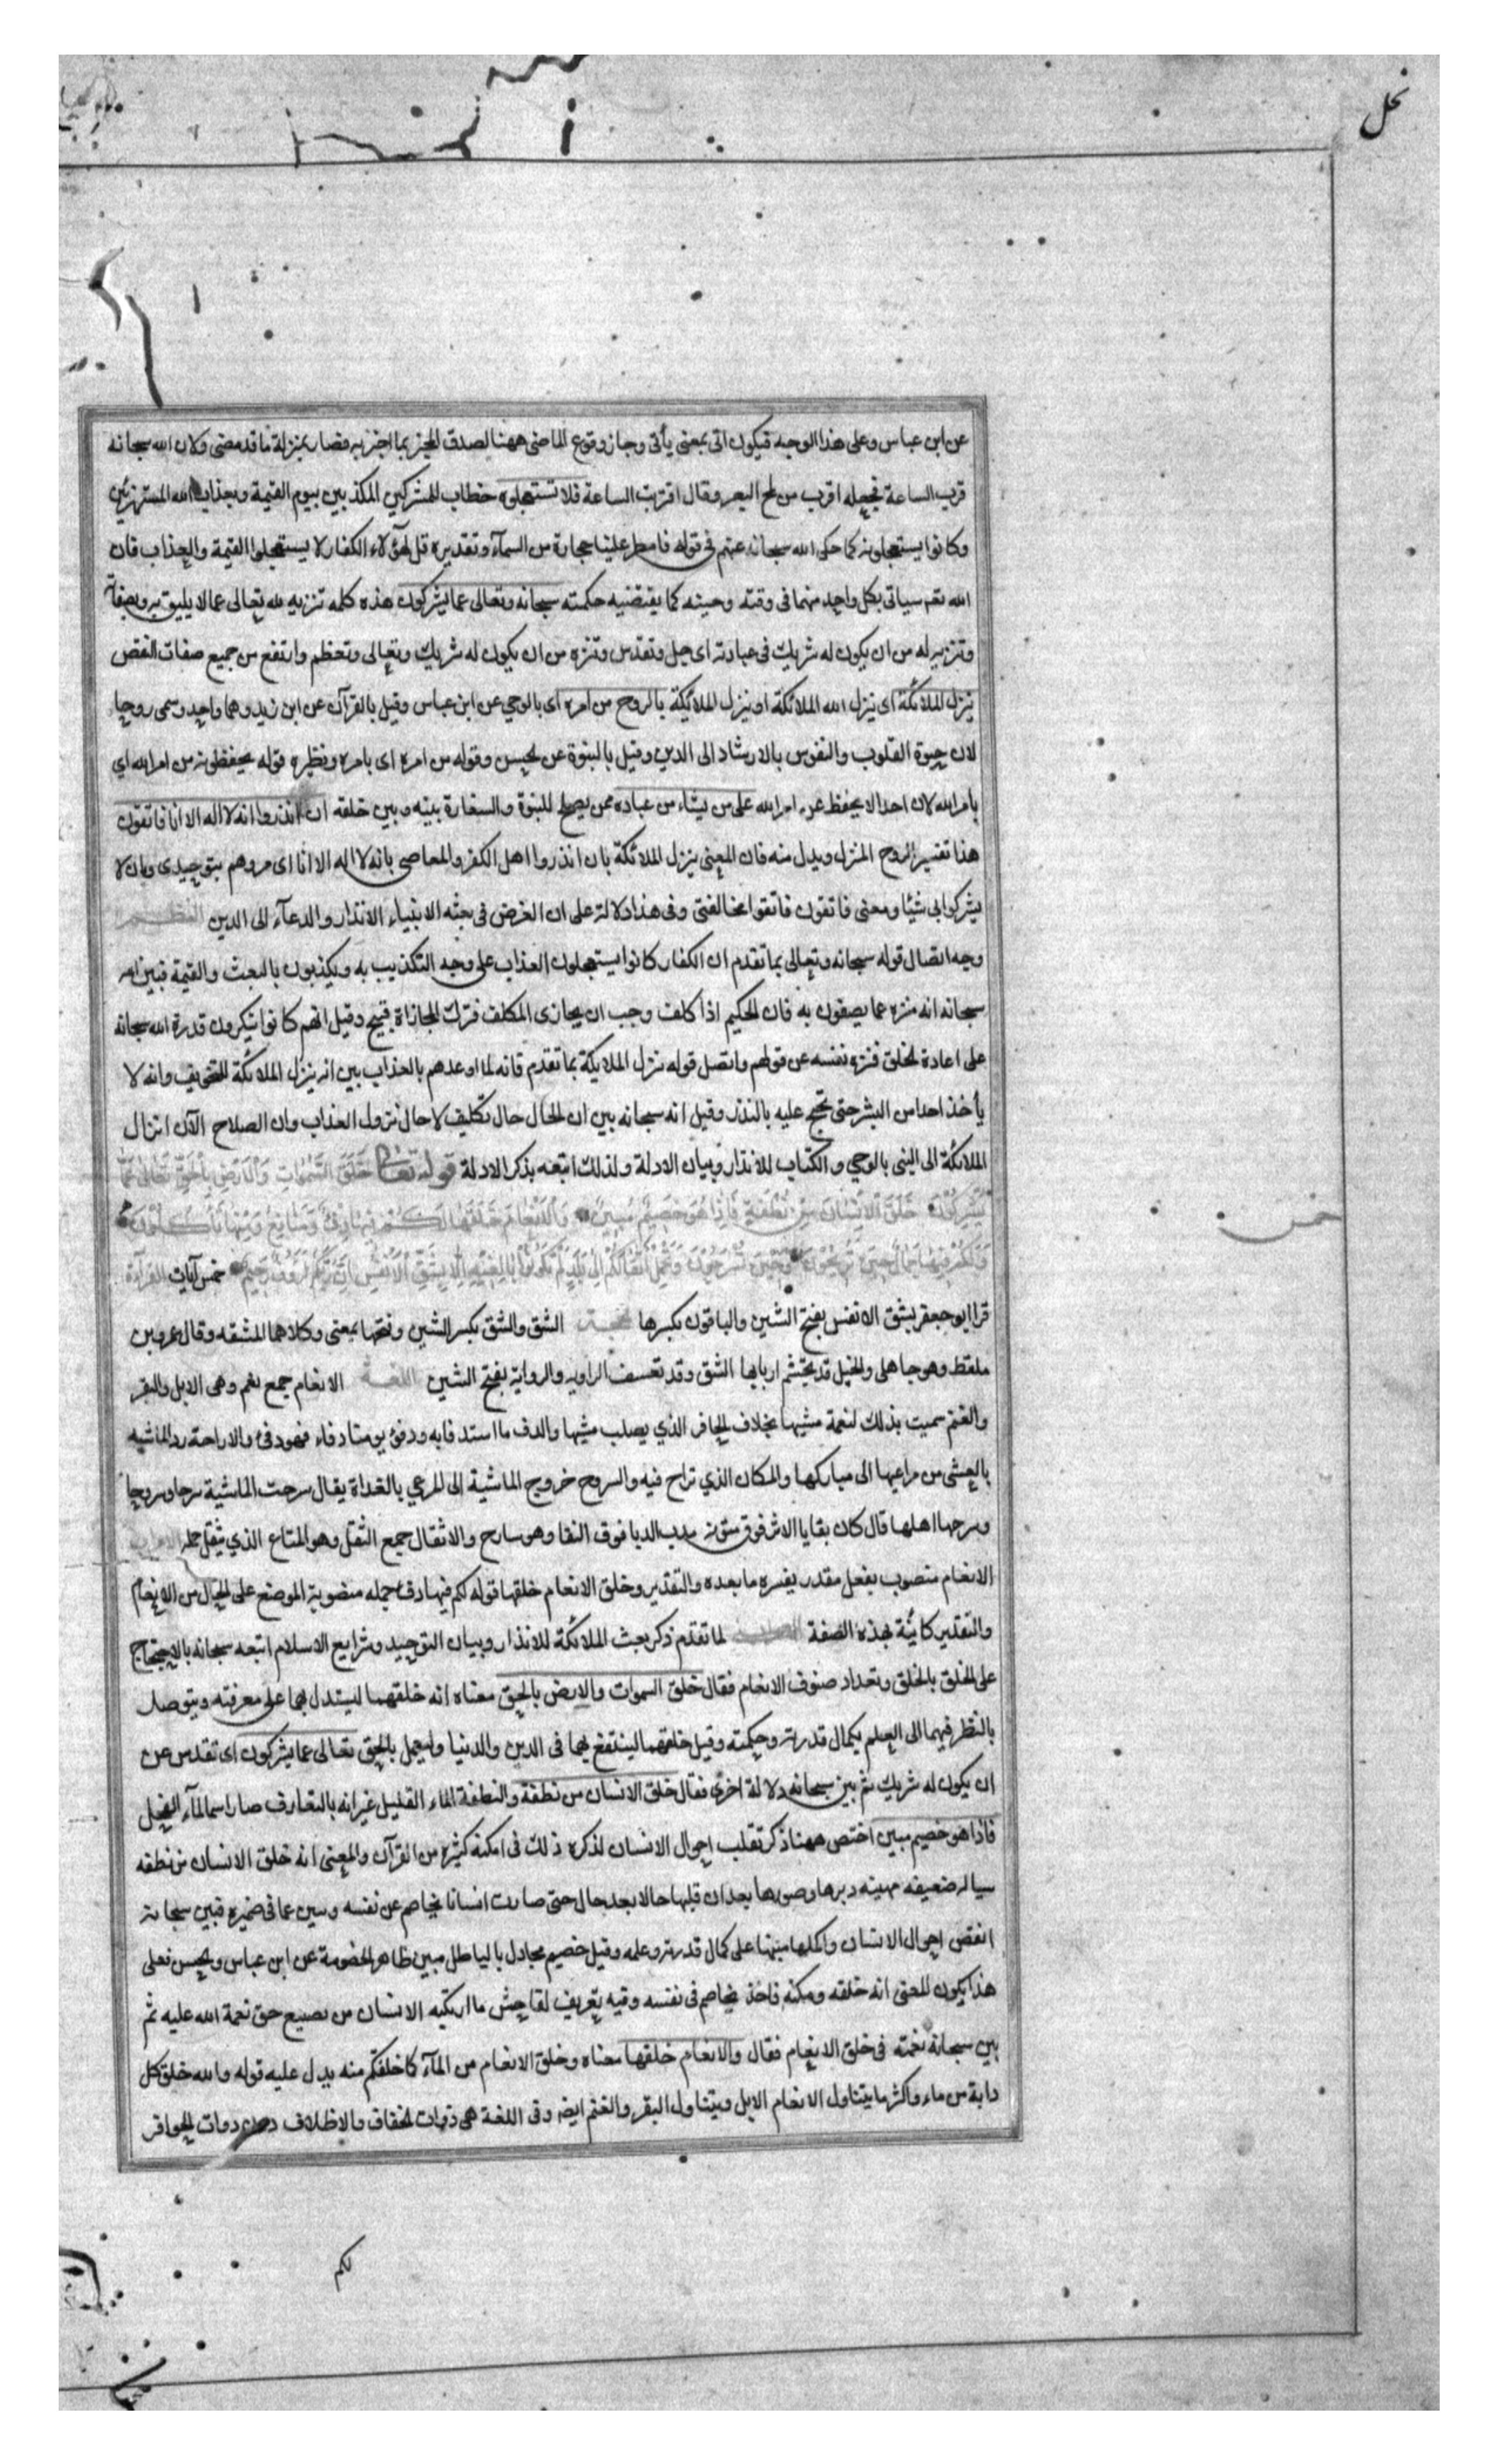 نحل
عن ابن عباس وعلى هذا الوجه فيكون اتى بمعنى يأتى وجاز وقوع الماضى ههنا لصدق المخبر بما اخبر به فصار بمنزلة ما قد مضى ولان الله سبحانه
قرب الساعة فجعله اقرب من لمح البصر وقال اقتربت الساعة فلا تستعجلوه خطاب للمشركين المكذبين بيوم القيمة وبعذاب الله المستهزئين
وكانوا يستعجلونه كما حكى الله سبحانه عنهم فى قوله فامطر علينا حجارة من السمآء وتقديره قل لهؤلاء الكفار لا يستعجلوا القيمة والعذاب فان
الله تعم سياتى بكل واحد منهما فى وقته وحينه كما يقتضيه حكمته سبحانه وتعالى عما يشركون هذه كلمه تنزيه لله تعالى عما لا يليق به وبصفاته
وتنزيه له من ان يكون له شريك فى عبادته اى جل وتقدس وتنزه من ان يكون له شريك وتعالى وتعظم وارتفع من جميع صفات النقص
ينزل الملائكة اى ينزل الله الملائكة او ينزل الملائيكة بالروح من امره اى بالوحي عن ابن عباس وقيل بالقرآن عن ابن زيد وهما واحد وسمى روحا
لان حيوة القلوب والنفوس بالارشاد الى الدين وقيل بالنبوة عن الحسن وقوله من امره اى بامره ونظيره قوله يحفظونه من امر الله اي
بامر الله لان احدا لا يحفظ عن امر الله على من يشاء من عباده ممن يصلح للنبوة والسفارة بينه وبين خلقه ان انذروا انه لا اله الا انا فاتقون
هذا تفسير الروح المنزل وبدل منه فان المعنى ينزل الملائكة بان انذروا اهل الكفر والمعاصى بانه لا اله الا انا اى مروهم بتوحيدى وبان لا
يشركوا بى شيئا ومعنى فاتقون فاتقوا مخالفتى وفى هذا دلالة على ان الغرض فى بعثه الانبياء الانذار والدعآء الى الدين النظم
وجه اتصال قوله سبحانه وتعالى بما تقدم ان الكفار كانوا يستعجلون العذاب على وجه التكذيب به ويكذبون بالبعث والقيمة فبين الله
سبحانه انه منزه عما يصفون به فان الحكيم اذا كلف وجب ان يجازى المكلف فترك المجازاة قبيح وقيل انهم كانوا ينكرون قدرة الله سبحانه
على اعادة الخلق فنزه نفسه عن قولهم واتصل قوله ننزل الملايكة بما تقدم فانه لما اوعدهم بالعذاب بين انه ينزل الملائكة للتخويف وانه لا
يأخذ احدا من البشر حتى تحتج عليه بالنذر وقيل انه سبحانه بين ان الحال حال تكليف لا حال نزول العذاب وان الصلاح الآن انزال
الملائكة الى النبى بالوحي والكتاب للانذار وبيان الادلة ولذلك اتبعه بذكر الادلة قوله تعالى خَلَقَ السَّمٰوَاتِ وَالْاَرْضَ بِالْحَقِّ تَعَالٰى عَمَّا
يُشْرِكُونَ خَلَقَ الْاِنْسَانَ مِنْ نُطْفَةٍ فَاِذَا هُوَ خَصِيمٌ مُبِينٌ وَالْاَنْعَامَ خَلَقَهَا لَكُمْ فِيهَا دِفْءٌ وَمَنَافِعُ وَمِنْهَا تَأْكُلُونَ
وَلَكُمْ فِيهَا جَمَالٌ حِينَ تُرِيحُونَ وَحِينَ تَسْرَحُونَ وَتَحْمِلُ اَثْقَالَكُمْ اِلٰى بَلَدٍ لَمْ تَكُونُوا بَالِغِيهِ اِلَّا بِشِقِّ الْاَنْفُسِ اِنَّ رَبَّكُمْ لَرَؤُفٌ رَحِيمٌ خمس آيات القرآءة
خمس
قرا ابو جعفر بشق الانفس بفتح الشين والباقون بكسرها الشق والشق بكسر الشين وفتحها بمعنى وكلاهما المشقه وقال عمرو بن
ملقط وهو جاهلى والخيل قد تجشم اربابها الشق وقد تعسف الراويه والرواية بفتح الشين اللغة الانعام جمع نعم وهى الابل والبقر
والغنم سميت بذلك لنعمة مشيها بخلاف الحافر الذي يصلب مشيها والدف ما استدفا به ودفؤ يومنا دفاء فهو دفئ والاراحة رد الماشيه
بالعشى من مراعيها الى مباركها والمكان الذي تراح فيه والسروح خروج الماشية الى المرعي بالغداة يقال سرحت الماشية سرحا وسروحا
وسرحها اهلها قال كان بقايا الاثر فوق متونه مدب الدبا فوق النقا وهو سارح والاثقال جمع الثقل وهو المتاع الذي يثقل حمله الاعراب
الانعام منصوب بفعل مقدر يفسره ما بعده والتقدير وخلق الانعام خلقها قوله لكم فيها دفء جمله منصوبة الموضع على الحال من الانعام
والتقدير كائنة بهذه الصفة لما تقدم ذكر بعث الملائكة للانذار وبيان التوحيد وشرايع الاسلام اتبعه سبحانه بالاحتجاج
على الخلق بالخلق وتعداد صنوف الانعام فقال خلق السموات والارض بالحق معناه انه خلقهما ليستدل بهما على معرفته ويتوصل
بالنظر فيهما الى العلم بكمال قدرته وحكمته وقيل خلقهما لينتفع بهما فى الدين والدنيا وليعمل بالحق تعالى عما يشركون اى تقدس عن
ان يكون له شريك ثم بين سبحانه دلالة اخرى فقال خلق الانسان من نطفة والنطفة الماء القليل غير انه بالتعارف صار اسما لمآء الفحل
فاذا هو خصيم مبين اختص ههنا ذكر تقلب احوال الانسان لذكره ذلك فى امكنة كثيرة من القرآن والمعنى انه خلق الانسان من نطفه
سياله ضعيفه مهينه دبرها وصورها بعد ان قلبها حالا بعد حال حتى صارت انسانا يخاصم عن نفسه ويبين عما فى ضميره فبين سبحانه
انقص احوال الانسان واكملها منبها على كمال قدرته وعلمه وقيل خصيم مجادل بالباطل مبين ظاهر الخصومة عن ابن عباس والحسن فعلى
هذا يكون المعنى انه خلقه ومكنه فاخذ يخاصم فى نفسه وفيه تعريف لفاحش ما ارتكبه الانسان من تضييع حق نعمة الله عليه ثم
بين سبحانه نعمته فى خلق الانعام فقال والانعام خلقها معناه وخلق الانعام من المآء كما خلقكم منه يدل عليه قوله والله خلق كل
دابة من ماء واكثر ما يتناول الانعام الابل ويتناول البقر والغنم ايضا وفى اللغة هى ذوات الخفاف والاظلاف دون ذوات الحوافر
لكم